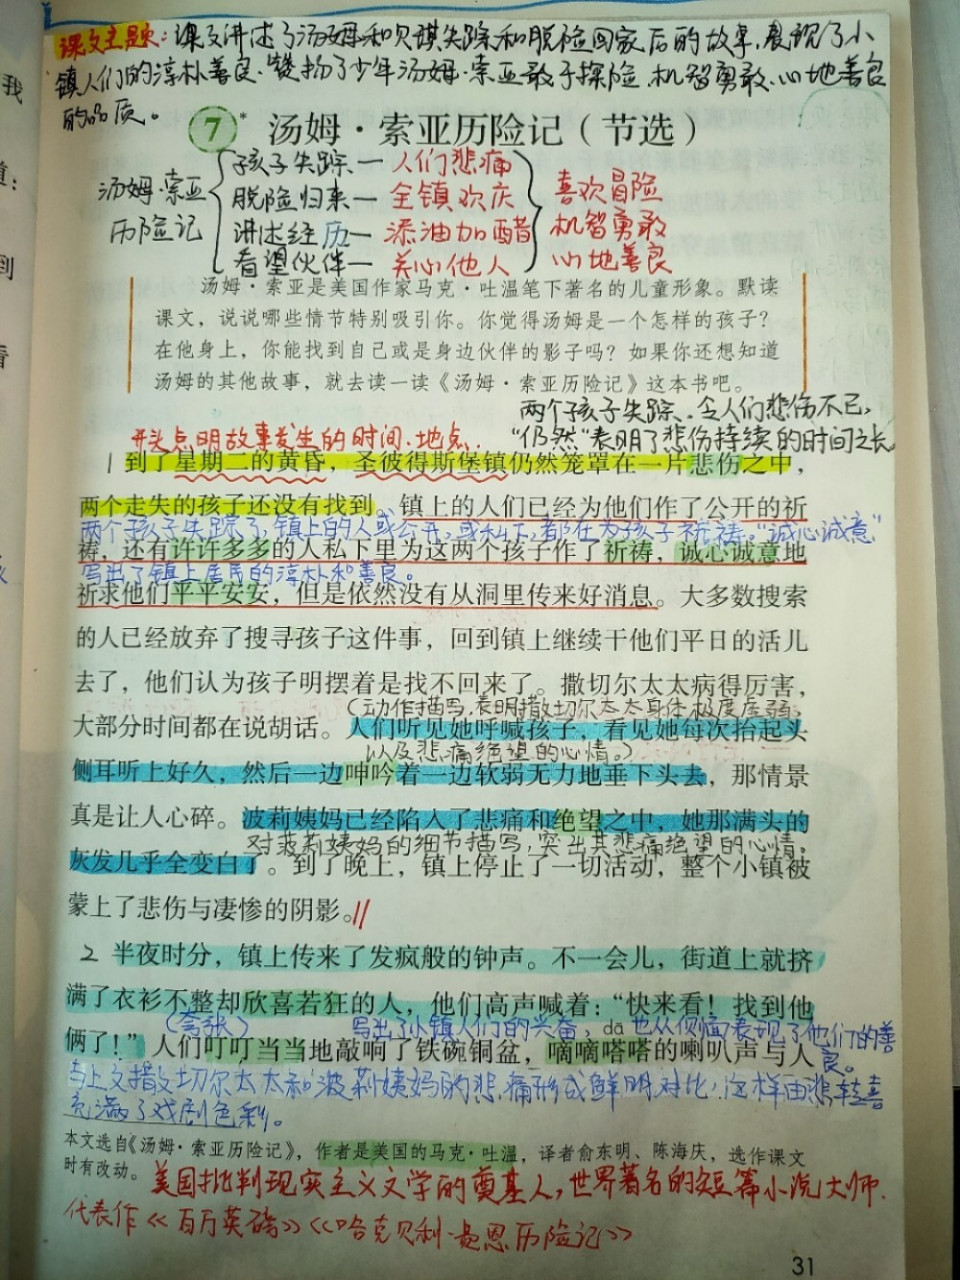 课文主题：课文讲述了汤姆和贝琪失踪和脱险回家后的故事,展现了小
镇人们的淳朴善良.赞扬了少年汤姆·索亚敢于探险.机智勇敢.心地善良
的品质。
7* 汤姆·索亚历险记（节选）
汤姆·索亚
历险记
孩子失踪—人们悲痛
脱险归来—全镇欢庆
讲述经历—添油加醋
看望伙伴—关心他人
喜欢冒险
机智勇敢
心地善良
汤姆·索亚是美国作家马克·吐温笔下著名的儿童形象。默读
课文，说说哪些情节特别吸引你。你觉得汤姆是一个怎样的孩子？
在他身上，你能找到自己或是身边伙伴的影子吗？如果你还想知道
汤姆的其他故事，就去读一读《汤姆·索亚历险记》这本书吧。
两个孩子失踪、令人们悲伤不已,
开头点明故事发生的时间.地点.
“仍然”表明了悲伤持续的时间之长
1 到了星期二的黄昏，圣彼得斯堡镇仍然笼罩在一片悲伤之中，
两个走失的孩子还没有找到。镇上的人们已经为他们作了公开的祈
两个孩子失踪了,镇上的人或公开,或私下,都在为孩子祈祷。“诚心诚意”
祷，还有许许多多的人私下里为这两个孩子作了祈祷，诚心诚意地
写出了镇上居民的淳朴和善良。
祈求他们平平安安，但是依然没有从洞里传来好消息。大多数搜索
的人已经放弃了搜寻孩子这件事，回到镇上继续干他们平日的活儿
去了，他们认为孩子明摆着是找不回来了。撒切尔太太病得厉害，
（动作描写.表明撒切尔太太身体极度虚弱,
大部分时间都在说胡话。人们听见她呼喊孩子，看见她每次抬起头
以及悲痛绝望的心情。）
侧耳听上好久，然后一边呻吟着一边软弱无力地垂下头去，那情景
真是让人心碎。波莉姨妈已经陷入了悲痛和绝望之中，她那满头的
对菠莉姨妈的细节描写,突出其悲痛绝望的心情。
灰发几乎全变白了。到了晚上，镇上停止了一切活动，整个小镇被
蒙上了悲伤与凄惨的阴影。
2 半夜时分，镇上传来了发疯般的钟声。不一会儿，街道上就挤
满了衣衫不整却欣喜若狂的人，他们高声喊着：“快来看！找到他
（夸张） 写出了小镇人们的兴奋, dā 也从侧面表现了他们的善
俩了！”人们叮叮当当地敲响了铁碗铜盆，嘀嘀嗒嗒的喇叭声与人
良。
与上文撒切尔太太和波莉姨妈的悲痛形成鲜明对比,这样由悲转喜
充满了戏剧色彩。
本文选自《汤姆·索亚历险记》，作者是美国的马克·吐温，译者俞东明、陈海庆，选作课文
时有改动。
美国批判现实主义文学的奠基人,世界著名的短篇小说大师.
代表作《百万英磅》《哈克贝利·费恩历险记》
31